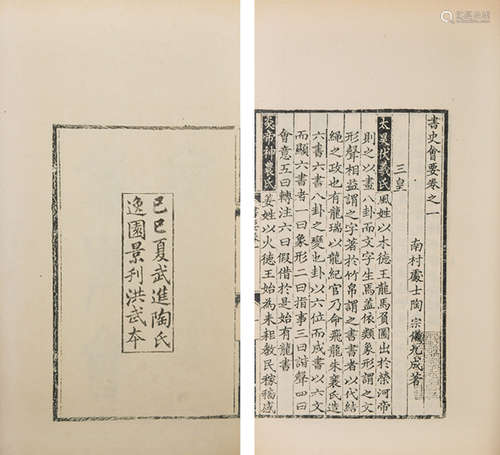 書史會要卷之一
南村處士陶宗儀九成著
三皇
太昊伏羲氏風姓以木德王龍馬負圖出於滎河帝
則之以畫八卦而文字生焉蓋依類象形謂之文
形聲相益謂之字著於竹帛謂之書書者以代結
繩之政也有龍瑞以龍紀官乃命飛龍朱襄氏造
六書六書八卦之變也卦以六位而成書以六文
而顯六書者一曰象形二曰指事三曰諧聲四曰
會意五曰轉注六曰假借於是始有龍書
炎帝神農氏姜姓以火德王始為耒耜教民稼穡感
己巳夏武進陶氏
逸園景刊洪武本